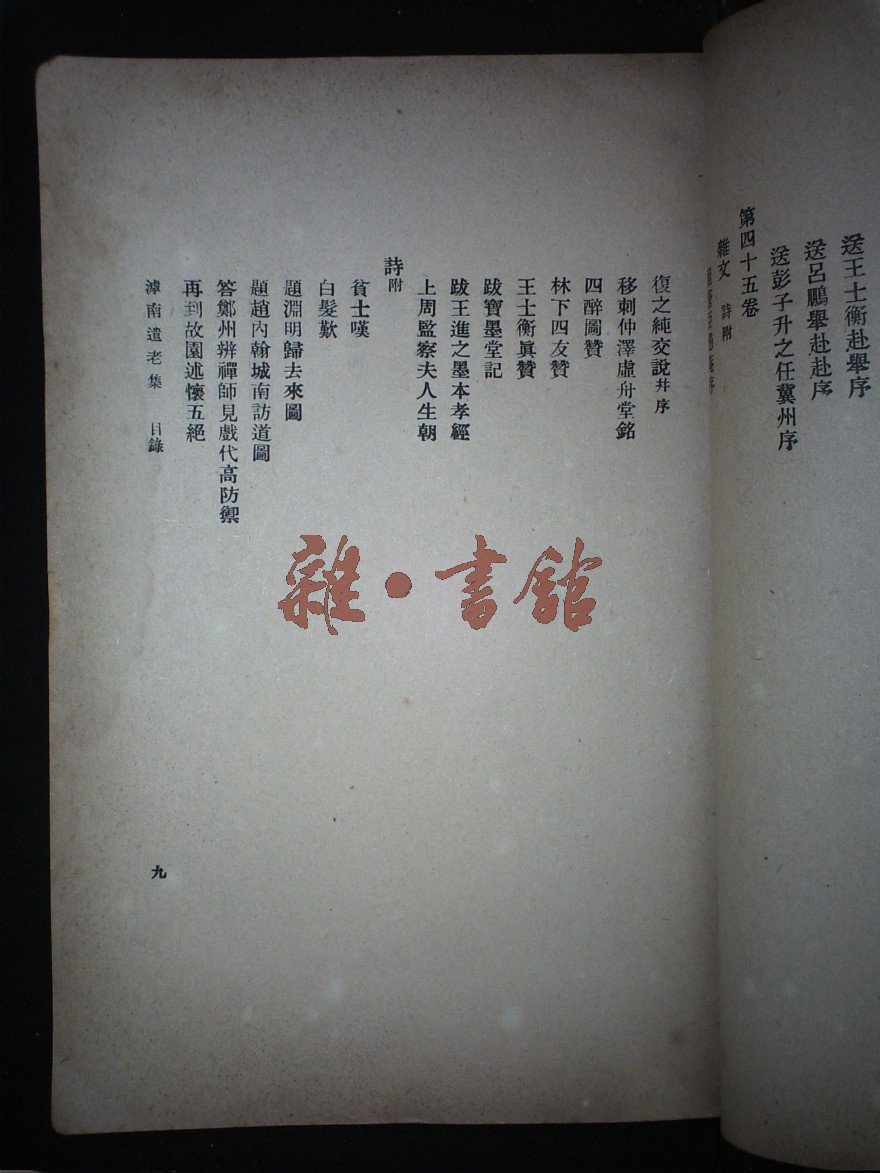 送王士衡赴舉序
送呂鵬舉赴赴序
送彭子升之任冀州序
第四十五卷
雜文 詩附
復之純交說幷序
移刺仲澤虛舟堂銘
四醉圖贊
林下四友贊
王士衡眞贊
跋寶墨堂記
跋王進之墨本孝經
上周監察夫人生朝
詩附
貧士嘆
白髮歎
題淵明歸去來圖
題趙內翰城南訪道圖
答鄭州辨禪師見戲代高防禦
再到故園述懷五絕
滹南遺老集 目錄
九
雜·書館